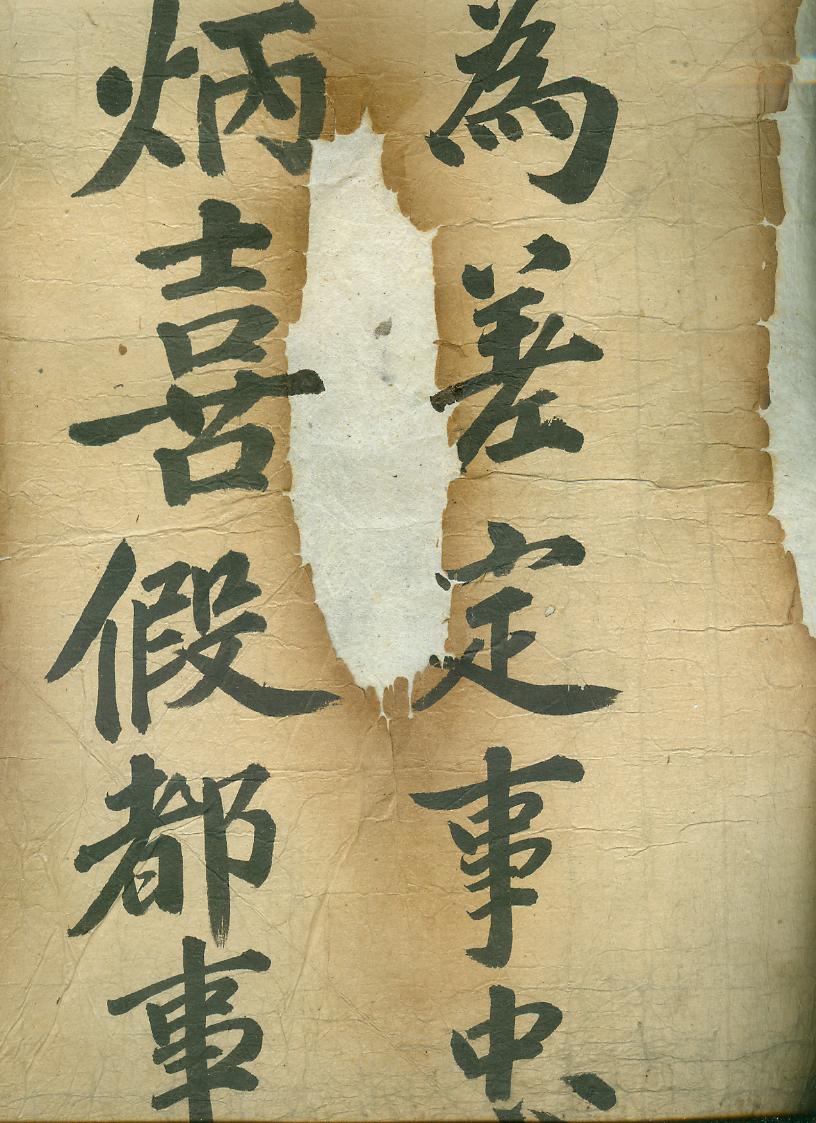 為差定事忠
炳喜假都事